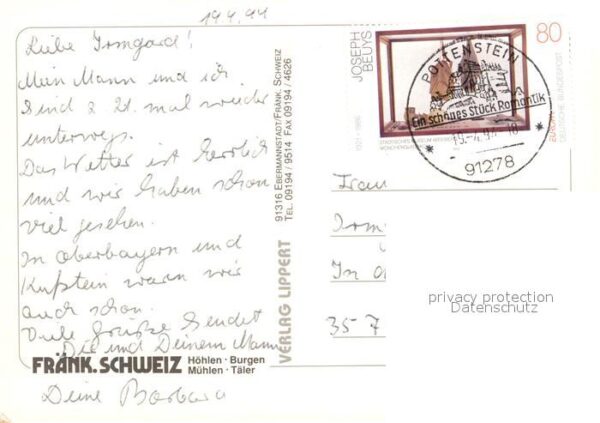 19.4.94
Liebe Irmgard!
Mein Mann und ich
sind z. Zt. mal wieder
unterwegs.
Das Wetter ist herrlich
und wir haben schon
viel gesehen.
In Oberbayern und
Kufstein waren wir
auch schon.
Viele Grüße sendet
Dir und Deinem Mann
Deine Barbara
FRÄNK. SCHWEIZ Höhlen · Burgen
Mühlen · Täler
VERLAG LIPPERT
91316 EBERMANNSTADT/FRÄNK. SCHWEIZ
TEL. 09194 / 9514 FAX 09194 / 4626
JOSEPH
BEUYS
1921-1986
80
EUROPA
DEUTSCHE BUNDESPOST
POTTENSTEIN
Ein schönes Stück Romantik
19.-4.94-18
91278
Frau
Irm
In
35 7
privacy protection
Datenschutz